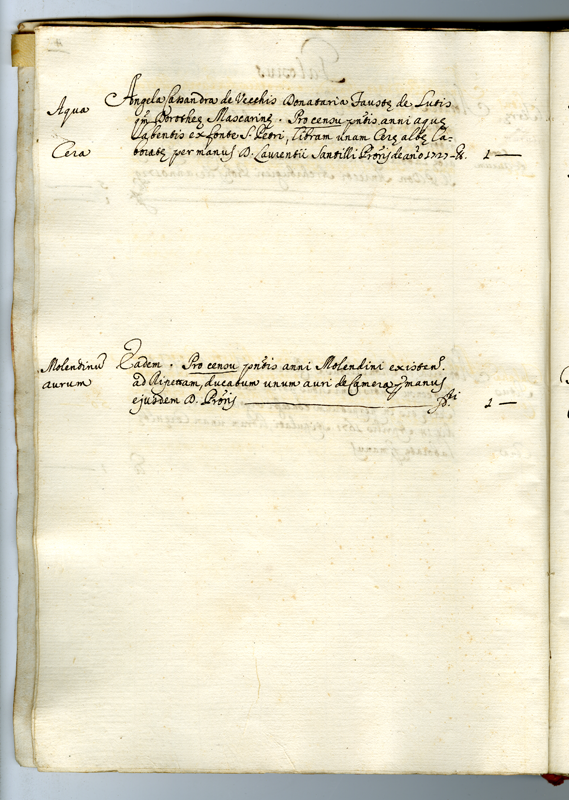 Aqua
Cera
Angela Cassandra de Vecchis Donataria Faustę de Lutis
qm̃ Dorotheę Mascarinę. Pro censu pñtis anni aquę
labentis ex fonte S. Petri, libram unam Cerę albę la-
boratę per manus D. Laurentii Santilli Proris de año 1727 - 1 —
Molendinũ
aurum
Eadem. Pro censu pñtis anni Molendini existen.
ad Ripettam, ducatum unum auri de Camera manus
ejusdem D. Proris — 1 —